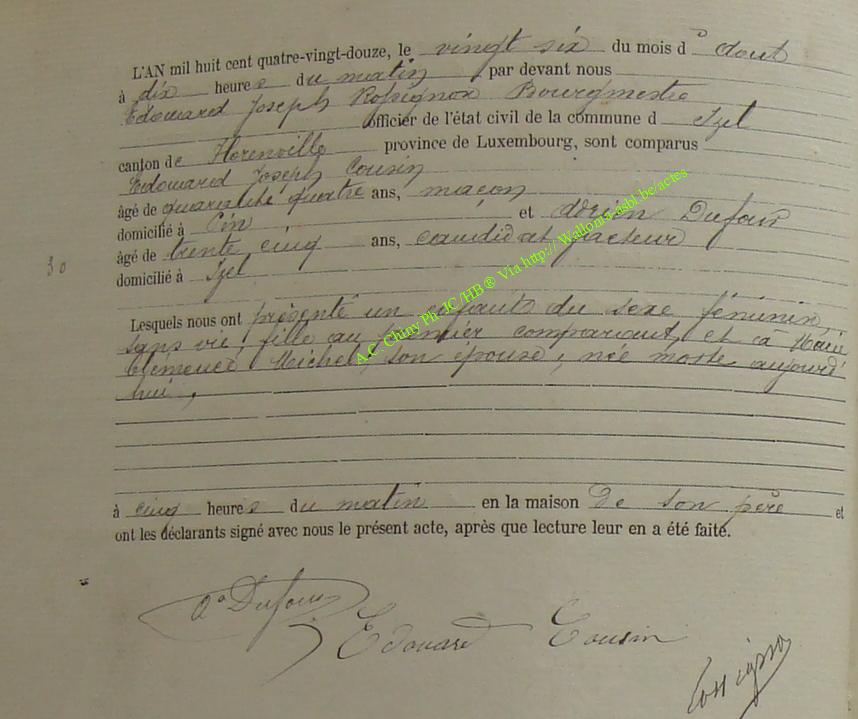 L'AN mil huit cent quatre-vingt-douze, le vingt six du mois d'août
à dix heures du matin par devant nous
Edouard Joseph Rossignon Bourgmestre
officier de l'état civil de la commune d Izel
canton de Florenville province de Luxembourg, sont comparus
Edouard Joseph Cousin
âgé de quarante quatre ans, maçon
domicilié à Pin et Adrien Dufour
âgé de trente cinq ans, candidat facteur
30
domicilié à Izel
Lesquels nous ont présenté un enfant du sexe féminin,
sans vie, fille au premier comparant, et à Marie
Clémence Michel, son épouse, née morte aujourd'
hui,
à cinq heures du matin en la maison de son père et
ont les déclarants signé avec nous le présent acte, après que lecture leur en a été faite.
A. Dufour
Edouard Cousin
Rossignon
A.C. Chiny Ph. JC/HB ® Via http:// Wallonia-asbl.be/actes